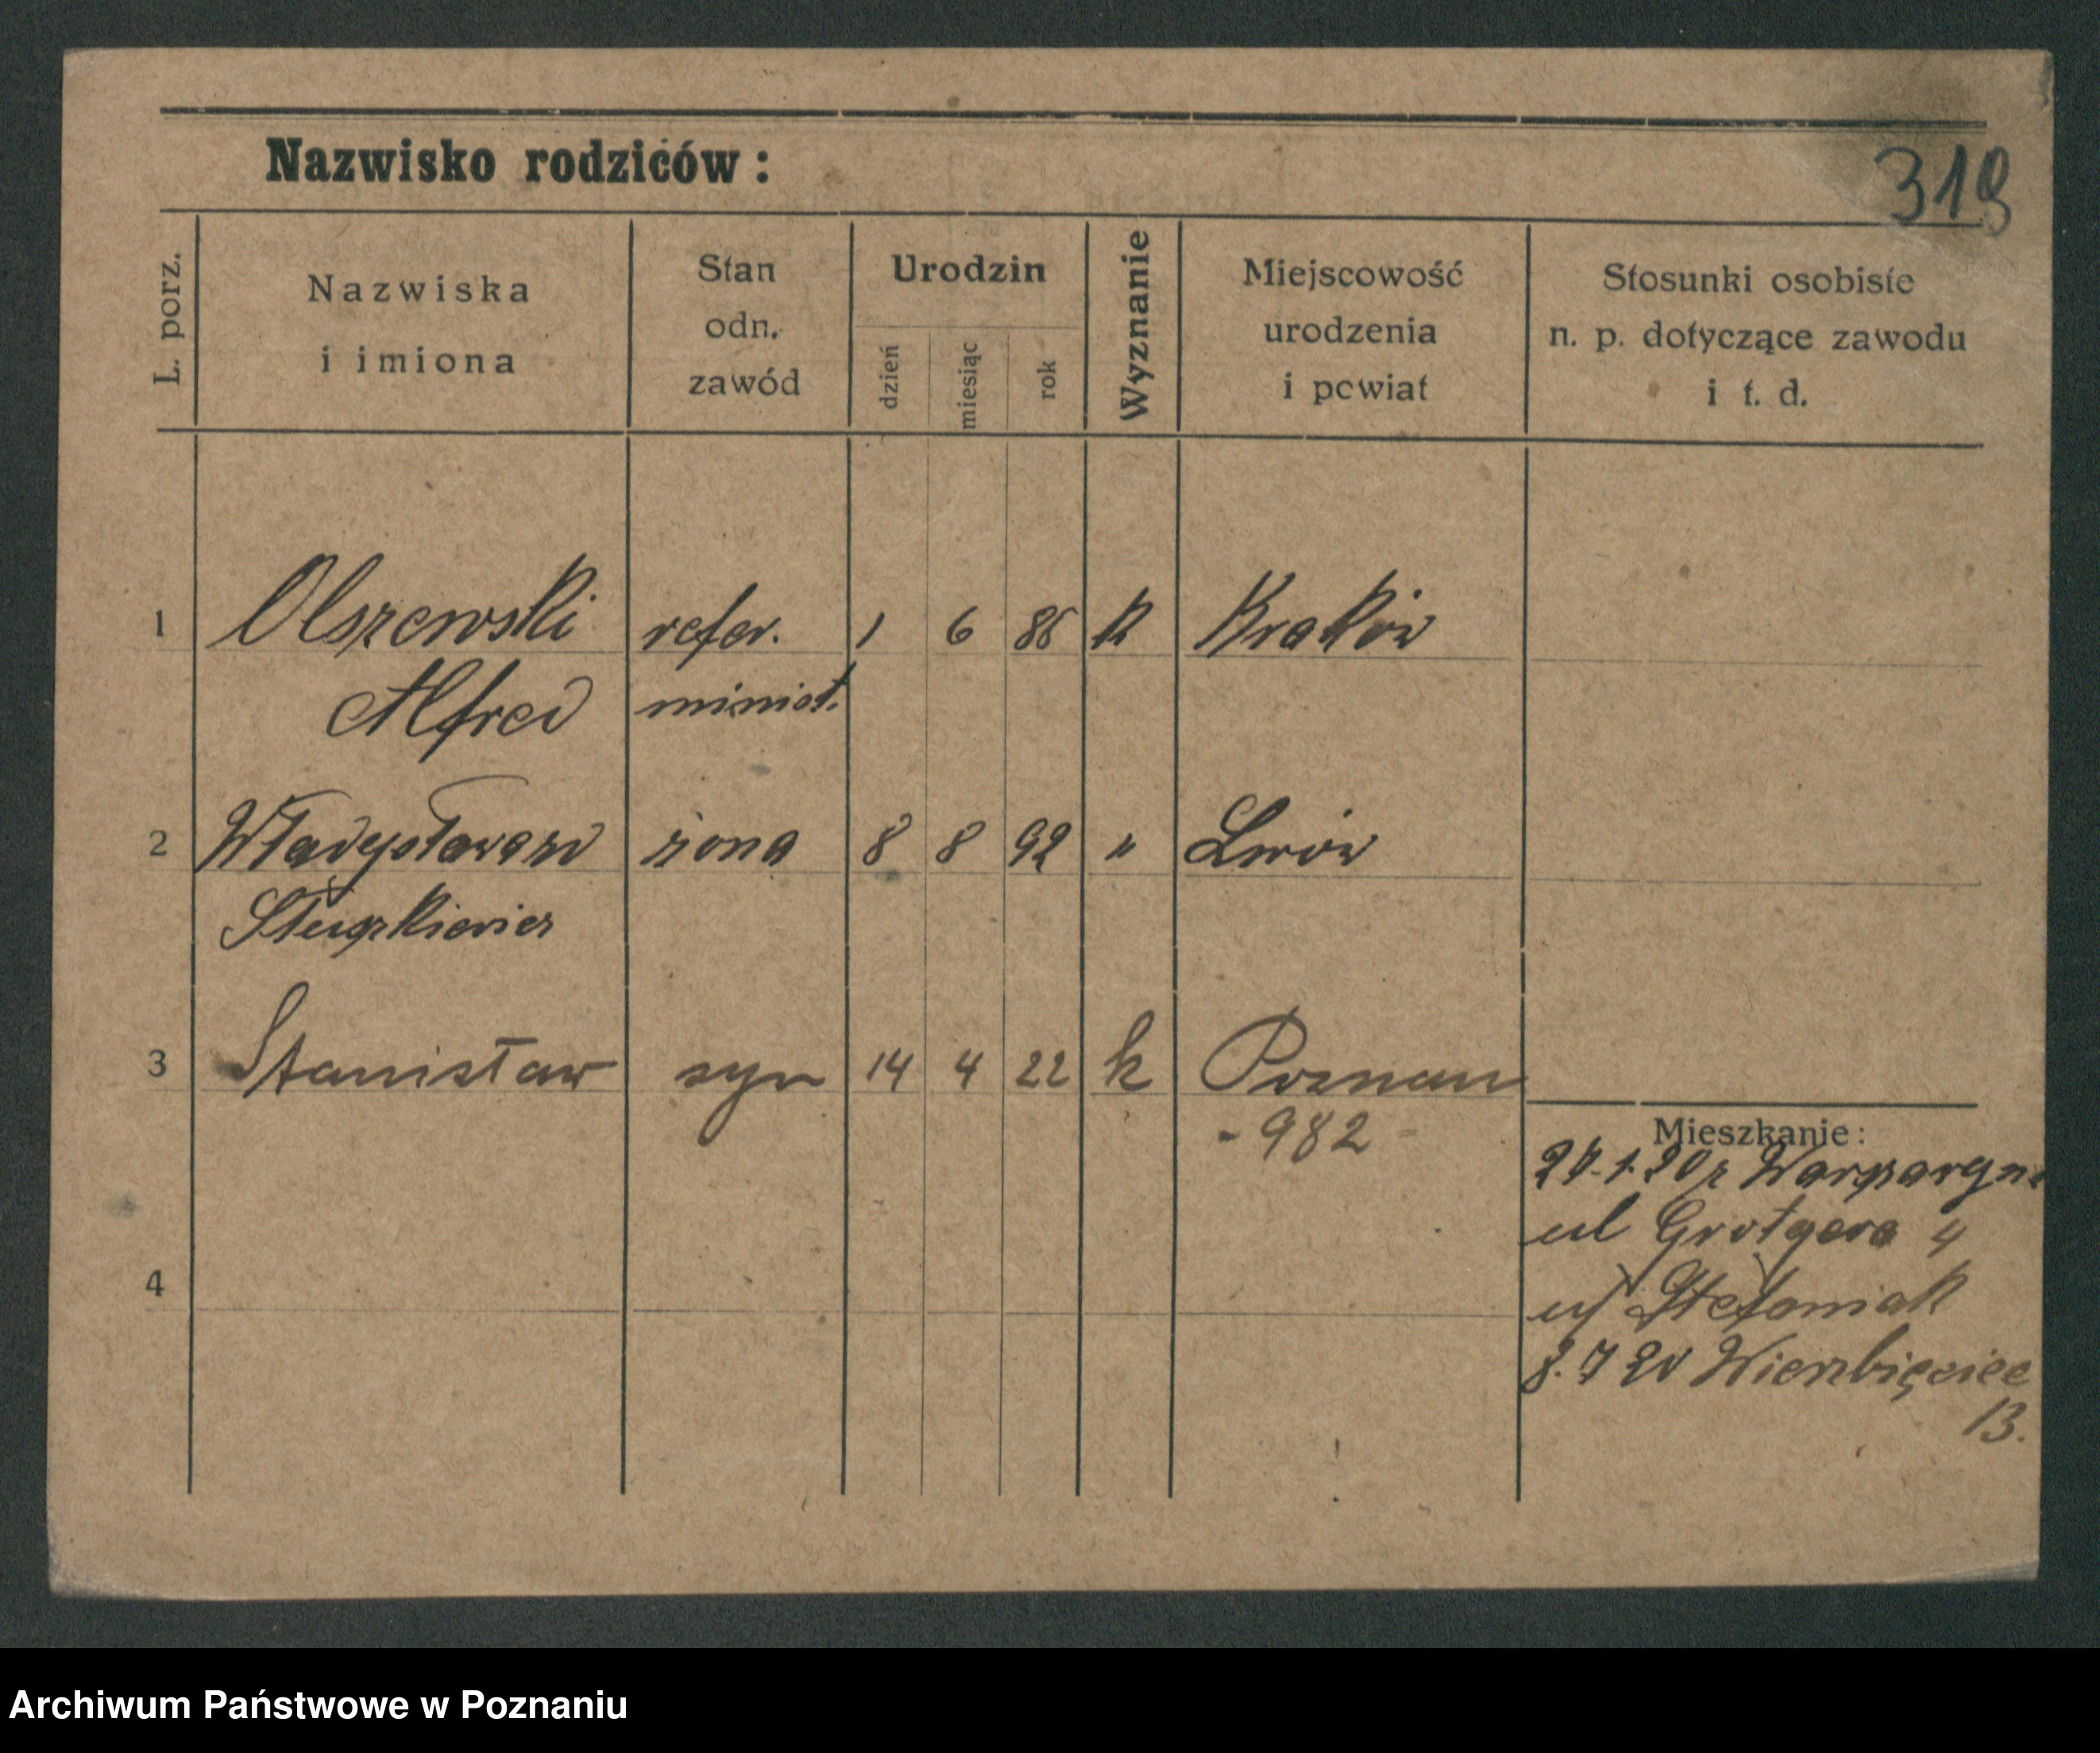 Nazwisko rodziców:
319
L. porz.
Nazwiska
i imiona
Stan
odn.
zawód
Urodzin
dzień
miesiąc
rok
Wyznanie
Miejscowość
urodzenia
i powiat
Stosunki osobiste
n. p. dotyczące zawodu
i t. d.
1 Olszewski refer. 1 6 86 k Kraków
Alfred minist.
2 żona 8 8 92 " Lwów
3 Stanisław syn 14 4 22 k Poznan
- 982 -
Mieszkanie:
ul Grotgera 4
Stefaniak
8.7 20 Wierzbięcice
13.
4
Archiwum Państwowe w Poznaniu